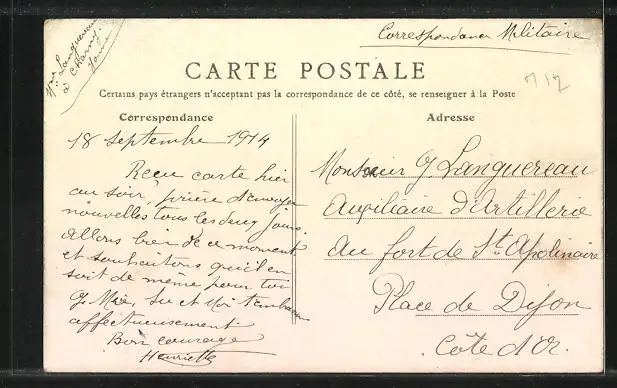 Mme Languereau
à Charny
Yonne
Correspondance Militaire
712
CARTE POSTALE
Certains pays étrangers n'acceptant pas la correspondance de ce côté, se renseigner à la Poste
Correspondance
18 septembre 1914
Reçu carte hier
au soir, prière d'envoyer
nouvelles tous les deux jours.
Allons bien de ce moment
et souhaitons qu'il en
soit de même pour toi
G. Mre, Su et moi t'embrassons
affectueusement
Bon courage
Henriette
Adresse
Monsieur G Languereau
Auxiliaire d'Artillerie
Au fort de St. Apolinaire
Place de Dijon
Côte d'Or.